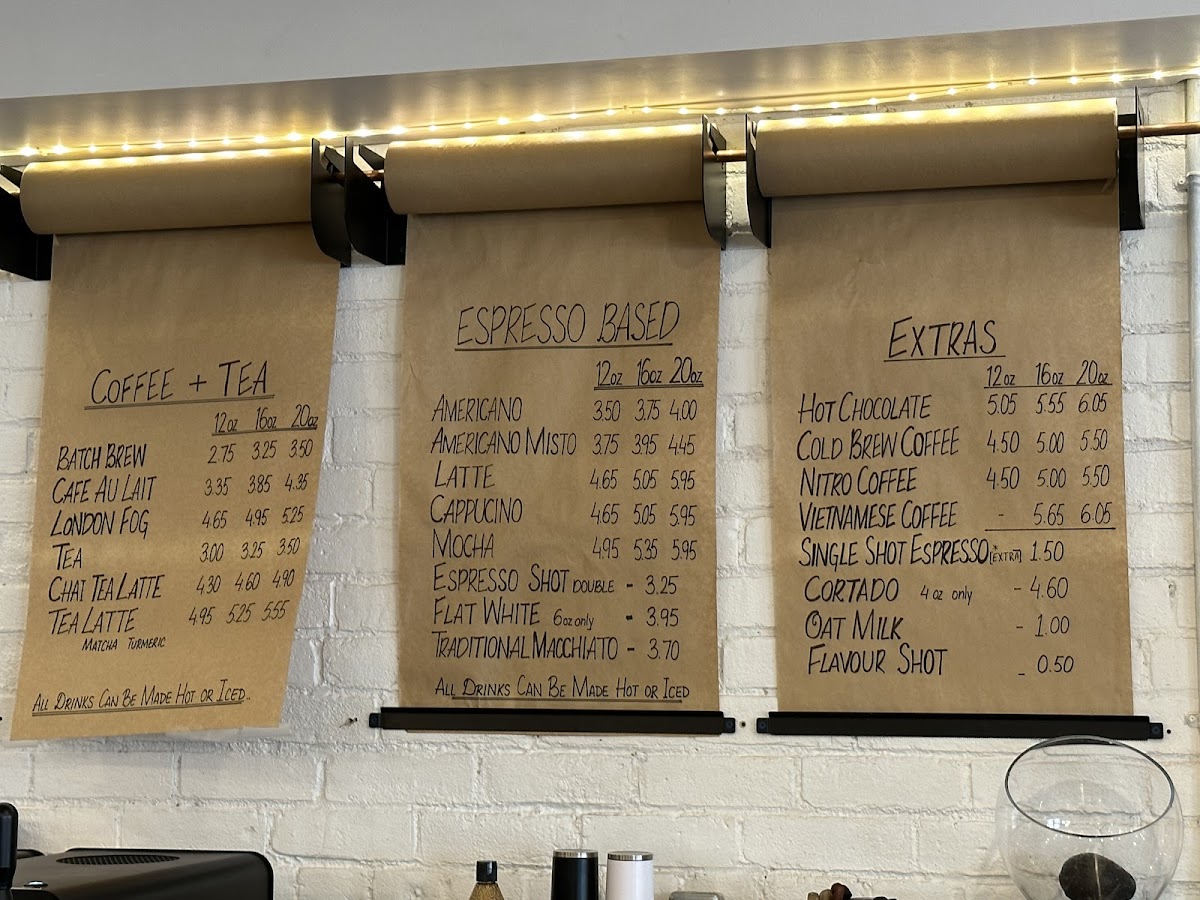 COFFEE + TEA
12oz 16oz 20oz
BATCH BREW 2.75 3.25 3.50
CAFE AU LAIT 3.35 3.85 4.35
LONDON FOG 4.65 4.95 5.25
TEA 3.00 3.25 3.50
CHAI TEA LATTE 4.30 4.60 4.90
TEA LATTE 4.95 5.25 5.55
MATCHA TURMERIC
ALL DRINKS CAN BE MADE HOT OR ICED..
ESPRESSO BASED
12oz 16oz 20oz
AMERICANO 3.50 3.75 4.00
AMERICANO MISTO 3.75 3.95 4.45
LATTE 4.65 5.05 5.95
CAPPUCINO 4.65 5.05 5.95
MOCHA 4.95 5.35 5.95
ESPRESSO SHOT DOUBLE - 3.25
FLAT WHITE 6oz only - 3.95
TRADITIONAL MACCHIATO - 3.70
ALL DRINKS CAN BE MADE HOT OR ICED
EXTRAS
12oz 16oz 20oz
HOT CHOCOLATE 5.05 5.55 6.05
COLD BREW COFFEE 4.50 5.00 5.50
NITRO COFFEE 4.50 5.00 5.50
VIETNAMESE COFFEE - 5.65 6.05
SINGLE SHOT ESPRESSO [EXTRA] 1.50
CORTADO 4oz only - 4.60
OAT MILK - 1.00
FLAVOUR SHOT - 0.50